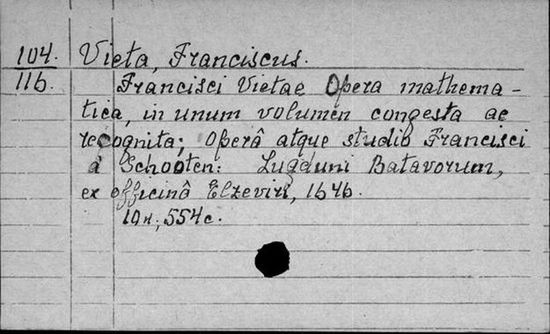 104. Vieta, Franciscus.
116 Francisci Vietae Opera mathema-
tica, in unum volumen congesta ac
recognita; Operâ atque studio Francisci
à Schooten: Lugduni Batavorum,
ex officinâ Elzeviri, 1646.
10н, 554с.